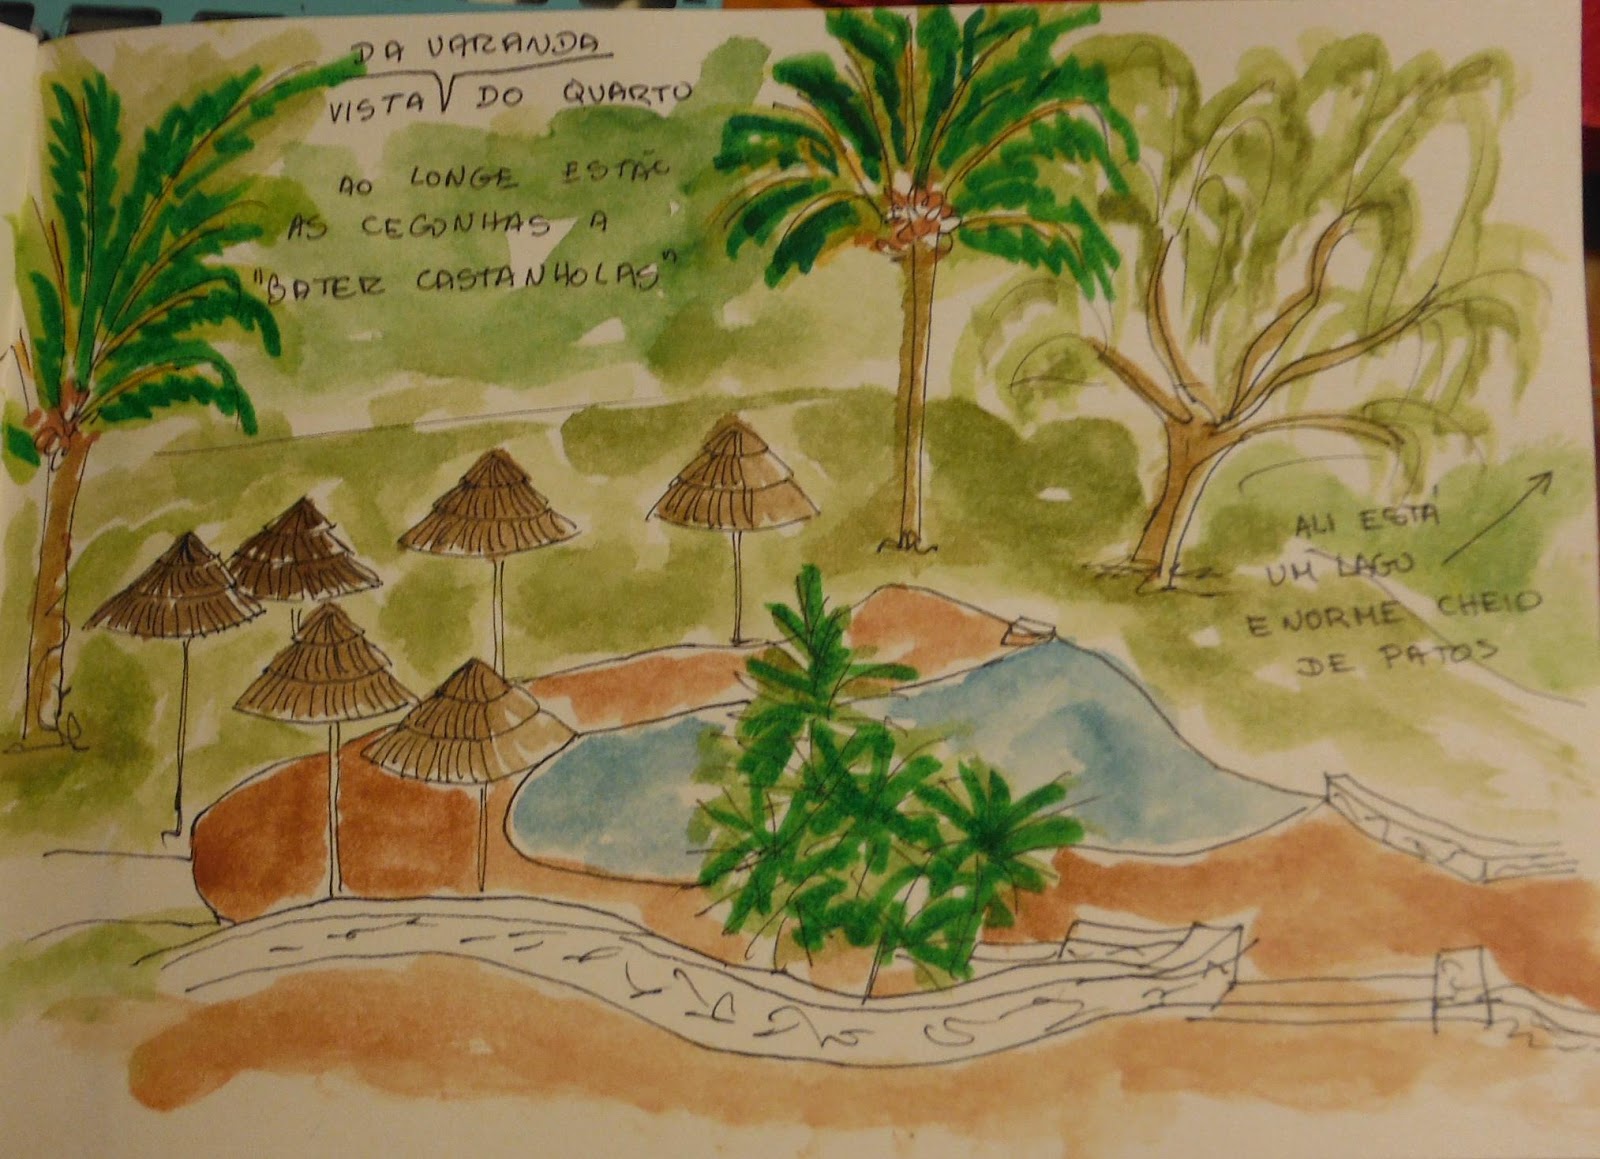 DA VARANDA
VISTA DO QUARTO
AO LONGE ESTÃO
AS CEGONHAS A
"BATER CASTANHOLAS"
ALI ESTÁ
UM LAGO
ENORME CHEIO
DE PATOS